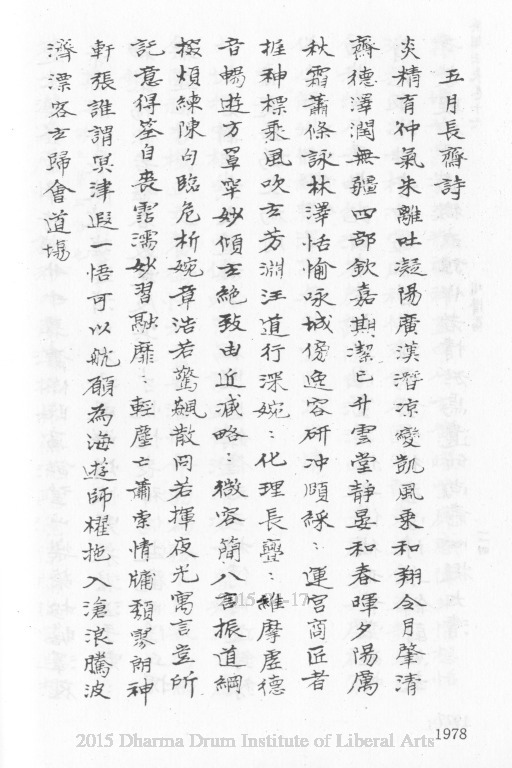 五月長齋詩
炎精育仲氣朱離吐凝陽廣漢潛凉變凱風乘和翔令月肇清
齋德澤潤無疆四部欽嘉期潔己升雲堂靜晏和春暉夕陽厲
秋霜蕭條詠林澤恬愉咏城傍逸容研冲賾綵〻運宮商匠者
握神標乘風吹玄芳淵汪道行深婉〻化理長亹〻維摩虛德
音暢遊方罩牢妙傾玄絕致由近滅略〻微容簡八言振道綱
掇煩練陳句臨危析婉章浩若驚飆散冏若揮夜光寓言豈所
託意得筌自喪霑濡妙習融靡〻輕塵亡蕭索情牖頹寥朗神
軒張誰謂冥津遐一悟可以航願為海遊師櫂拖入滄浪騰波
濟漂客玄歸會道場
1978
2015 Dharma Drum Institute of Liberal Arts